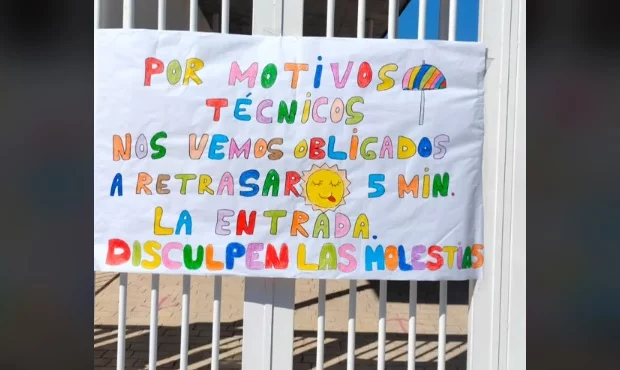 POR MOTIVOS
TÉCNICOS
NOS VEMOS OBLIGADOS
A RETRASAR 5 MIN.
LA ENTRADA.
DISCULPEN LAS MOLESTIAS